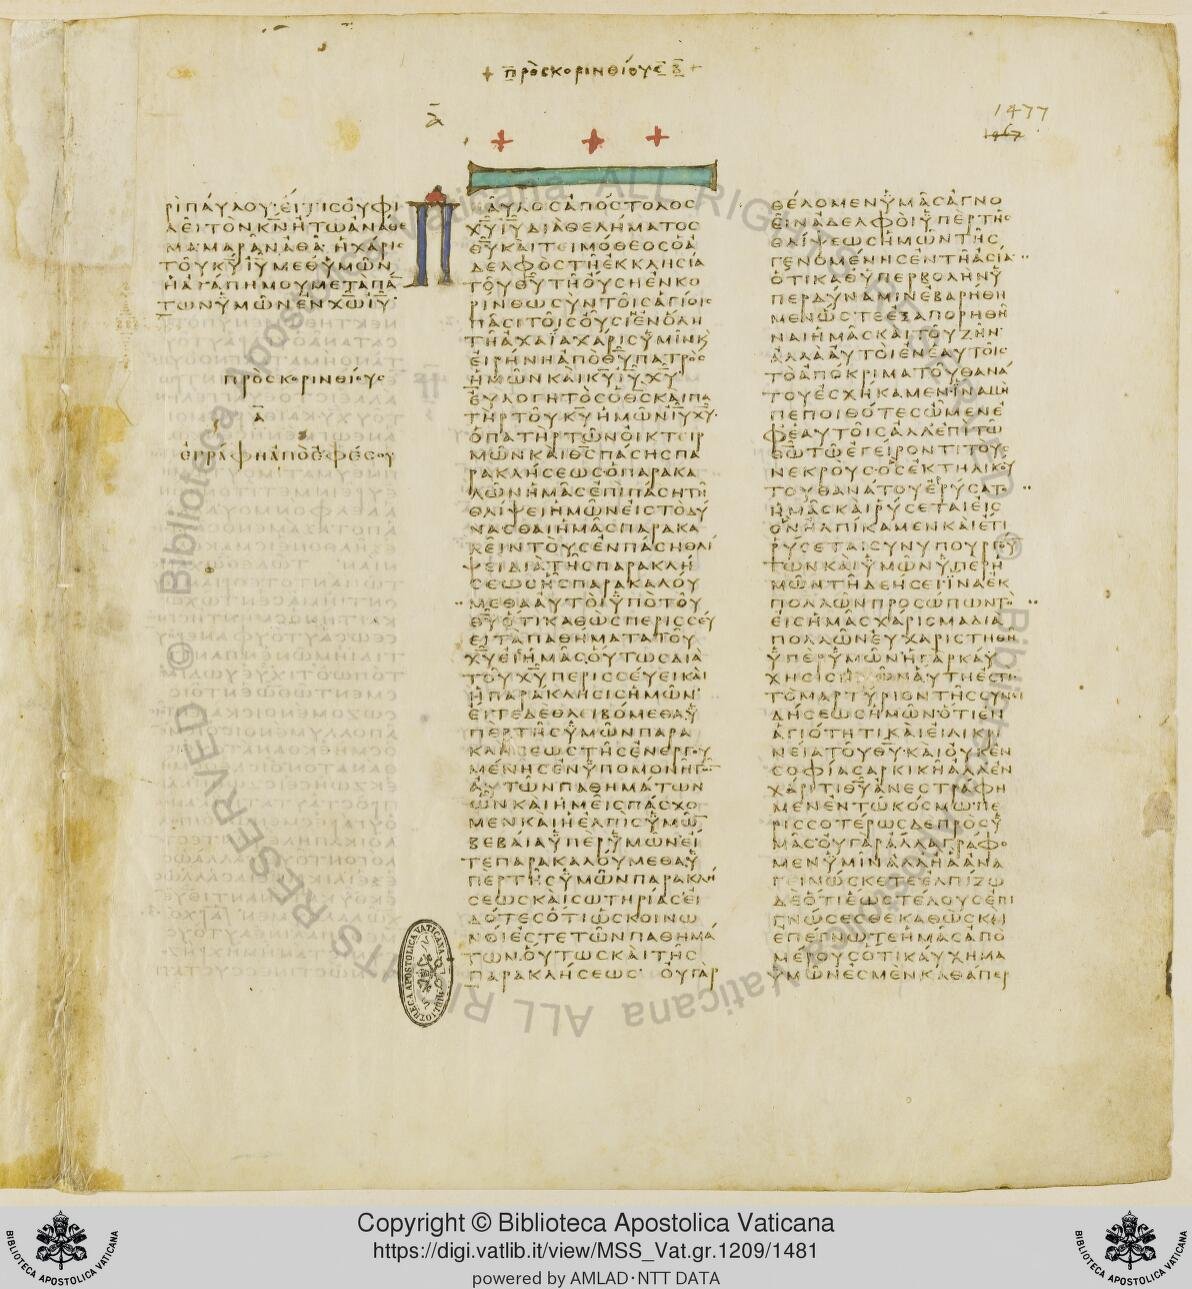 + προσκορινθιους β +
α
1477
1467
ριπαυλουειτισουφι
λειτονκνητωαναθε
μαμαραναθαηχαρις
τουκυιυμεθυμων
ηαγαπημουμεταπα
τωνυμωνενχωιυ
προσκορινθιους
α
εγραφηαποεφεσου
παυλοσαποστολος
χυιυδιαθεληματος
θυκαιτειμοθεοσοα
δελφοστηεκκλησια
τουθυτηουσηενκο
ρινθωσυντοισαγιοις
πασιτοισουσιενολη
τηαχαιαχαρισυμινκ
ειρηνηαποθυπατρος
ημωνκαικυιυχυ
ευλογητοσοθσκαιπα
τηρτουκυημωνιυχυ
οπατηρτωνοικτειρ
μωνκαιθσπασησπα
ρακλησεωσοπαρακα
λωνημασεπιπασητη
θλιψειημωνειστοδυ
νασθαιημασπαρακα
λειντουσενπασηθλι
ψειδιατησπαρακλη
σεωσησπαρακαλου
μεθααυτοιυποτου
θυοτικαθωσπερισσευ
ειταπαθηματατου
χυειςημασουτωσδια
τουχυπερισσευεικαι
ηπαρακλησισημων
ειτεδεθλειβομεθαυ
περτησυμωνπαρα
κλησεωστησενεργου
μενησενυπομονητω
αυτωνπαθηματων
ωνκαιημεισπασχο
μενκαιηελπισυμω
βεβαιαυπερυμωνει
τεπαρακαλουμεθαυ
περτησυμωνπαρακλη
σεωσκαισωτηριασει
δοτεσοτιωσκοινω
νοιεστετωνπαθημα
τωνουτωσκαιτης
παρακλησεωσ ουγαρ
θελομενυμασαγνο
ειναδελφοιυπερτης
θλιψεωσημωντης
γενομενησεντηασια
οτικαθυπερβοληνυ
περδυναμινεβαρηθη
μενωστεεξαπορηθη
ναιημασκαιτουζην
αλλααυτοιενεαυτοις
τοαποκριματουθανα
τουεσχηκαμεινιναμη
πεποιθοτεσωμενε
φεαυτοισαλλεπιτω
θωτωεγειροντιτους
νεκρουσοσεκτηλικου
τουθανατουερυσατο
ημασκαιρυσεταιεις
ονηλπικαμενκαιετι
ρυσεταισυνυπουργου
τωνκαιυμωνυπερη
μωντηδεησειιναεκ
πολλωνπροσωπωντο
εισημασχαρισμαδια
πολλωνευχαριστηθη
υπερυμωνηγαρκαυ
χησισημωναυτηεστι
τομαρτυριοντησσυνει
δησεωσημωνοτιεν
αγιοτητικαιειλικρι
νειατουθυκαιουκεν
σοφιασαρκικηαλλεν
χαριτιθυανεστραφη
μενεντωκοσμωπε
ρισσοτερωσδεπροσυ
μασουγαραλλαγραφο
μενυμιναλληαανα
γεινωσκετεελπιζω
δεοτιεωστελουσεπι
γνωσεσθεκαθωσκαι
επεγνωτεημασαπο
μερουσοτικαυχημα
υμωνεσμενκαθαπερ
BIBLIOTECA APOSTOLICA VATICANA
© Biblioteca Apostolica Vaticana ALL RIGHTS RESERVED
Copyright © Biblioteca Apostolica Vaticana
https://digi.vatlib.it/view/MSS_Vat.gr.1209/1481
powered by AMLAD·NTT DATA